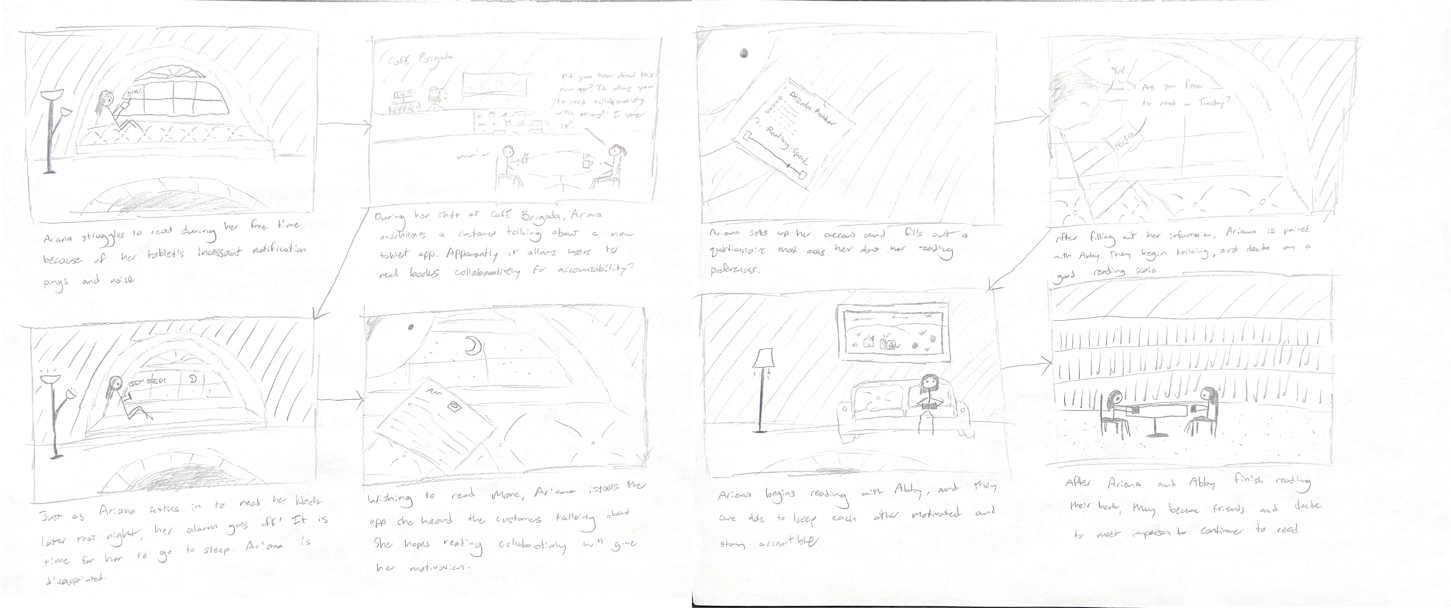 ping!
Ariana struggles to read during her free time
because of her tablet's incessant notification
pings and noise
Café Brigada
Did you hear about this
new app? It allows you
to read collaboratively
with others! I love
it!
During her shift at Café Brigada, Ariana
overhears a customer talking about a new
tablet app. Apparently it allows users to
read books collaboratively for accountability?
BEEP! BEEP!
Just as Ariana settles in to read her book
later that night, her alarm goes off! It is
time for her to go to sleep. Ariana is
disappointed.
APP
Wishing to read more, Ariana installs the
app she heard the customers talking about
She hopes reading collaboratively will give
her motivation.
Reading Speed
Ariana sets up her account and fills out a
questionnaire that asks her about her reading
preferences.
Yes!
Are you free
to read on Tuesday?
After filling out her information, Ariana is paired
with Abby. They begin talking, and decide on a
good reading scale.
Ariana begins reading with Abby, and they
are able to keep each other motivated and
stay accountible
After Ariana and Abby finish reading
their book, they become friends and decide
to meet inperson to continue to read